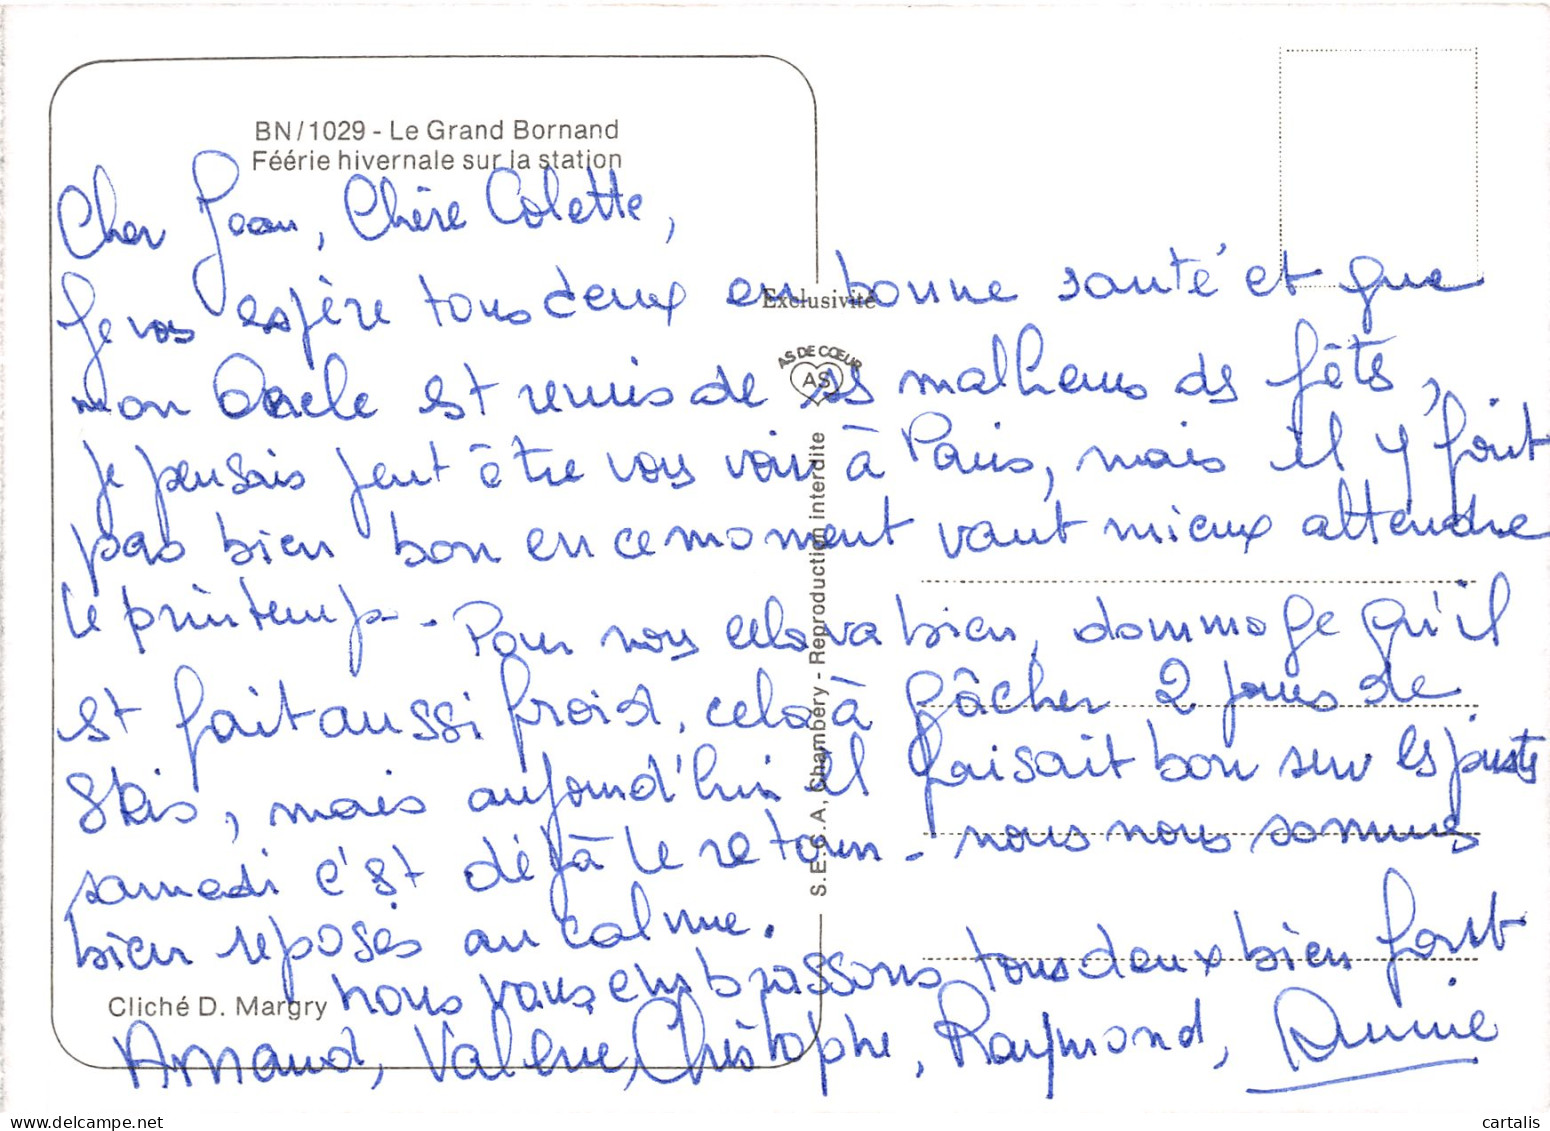 BN/1029 - Le Grand Bornand
Féérie hivernale sur la station
Cher Jean, Chère Colette,
Je vous espère tous deux en bonne santé et que
Exclusivité
AS DE CŒUR
AS
mon Oncle est remis de ses malheurs des fêtes,
je pensais peut être vous voir à Paris, mais il y fait
pas bien bon en ce moment vaut mieux attendre
le printemps. Pour nous cela va bien, dommage qu'il
est fait aussi froid, cela à gâcher 2 jours de
skis, mais aujourd'hui il faisait bon sur les pistes
samedi c'est déjà le retour. nous nous sommes
bien reposés au calme.
nous vous embrassons tous deux bien fort
Cliché D. Margry
Arnaud, Valérie, Christophe, Raymond, Annie
S.E.G.A, Chambéry - Reproduction interdite
cartalis